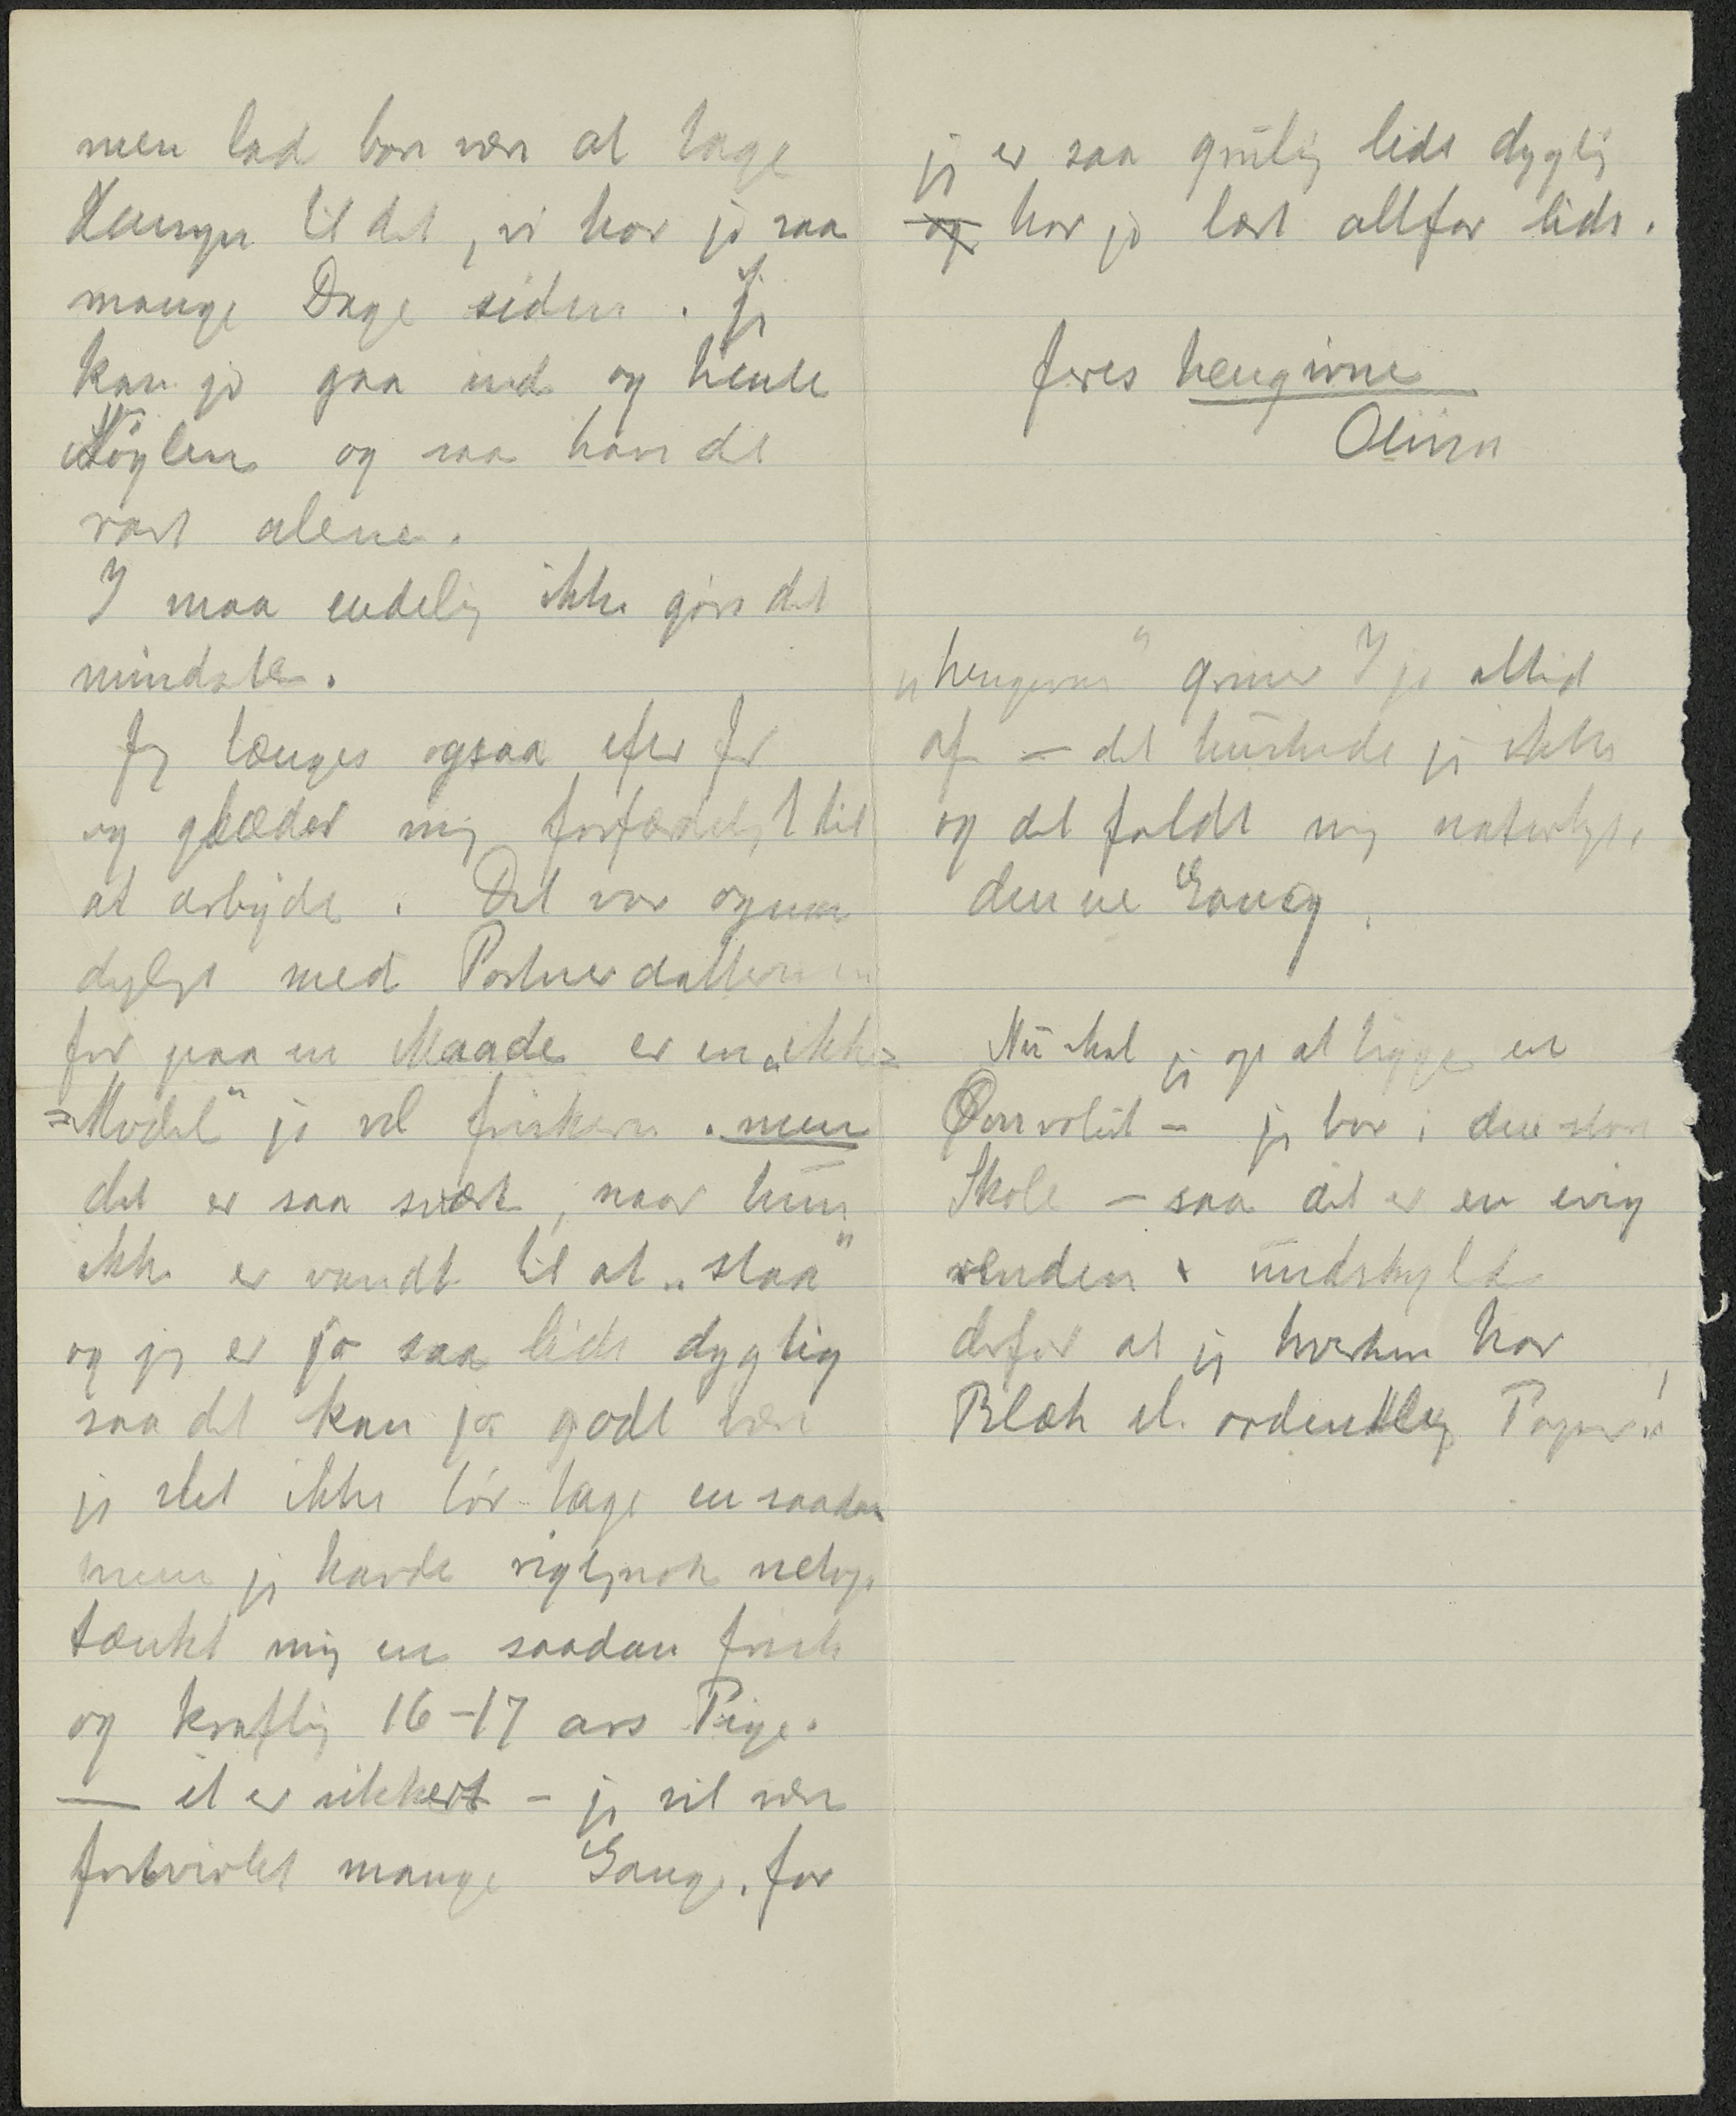 men lad bare være at tage
Hensyn til det, vi har jo saa
mange Dage siden. Jeg
kan jo gaa ind og hente
Nöglen og saa have det
rart alene.
I maa endelig ikke göre det
mindste.
Jeg længes ogsaa efter Jer
og glæder mig forfærdeligt til
at arbejde. Det var ogsaa
dygtigt med Portnerdatteren
for paa en Maade er en „ikke=
=Model" jo vel friskere. men
det er saa svært, naar hun
ikke er vandt til at „staa"
og jeg er jo saa lidt dygtig
saa det kan jo godt være
jeg slet ikke tör tage en saadan
men jeg havde rigtignok netop
tænkt mig en saadan frisk
og kraftig 16–17 aars Pige.
— et er sikkert – jeg vil være
fortvivlet mange Gange, for
jeg er saa grulig lidt dygtig
og har jo lært altfor lidt.
Jeres hengivne
„hengivne" griner I jo altid
af – det huskede jeg ikke
og det faldt mig naturligt
denne Gang.
Nu skal jeg op at ligge en
– jeg bor i den store
Skole – saa det er en evig
renden & undskyld
derfor at jeg hverken har
Blæk el. ordentlig Papir!